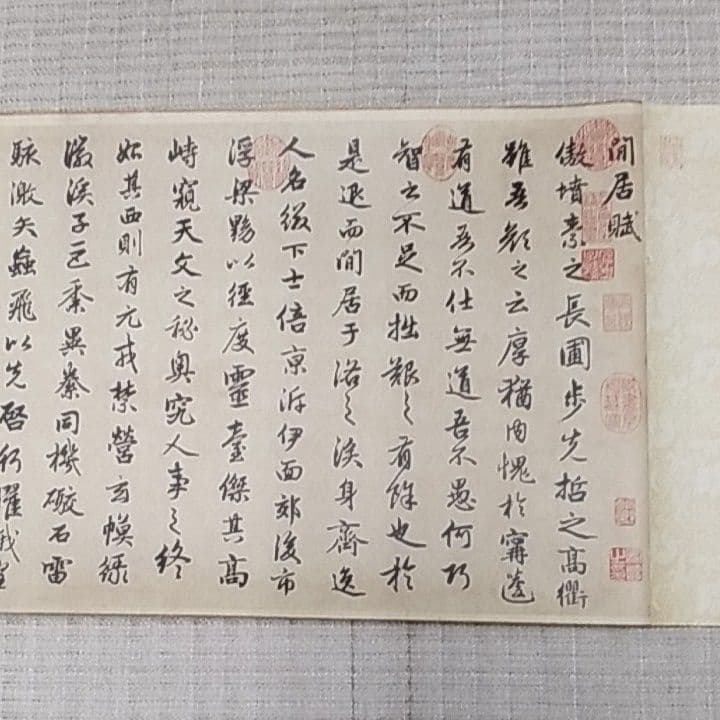 閒居賦
傲墳素之長圃步先哲之高衢
雖吾顏之云厚猶內愧於寗蘧
有道吾不仕無道吾不愚何巧
智之不足而拙艱之有餘也於
是退而閒居于洛之涘身齊逸
人名綴下士倍京泝伊面郊後市
浮梁黝以徑度靈臺傑其高
峙窺天文之秘奧究人事之終
始其西則有元戎禁營玄幙綠
徽溪子巨黍異絭同機礮石雷
駭激矢蝱飛以先啓行耀我皇